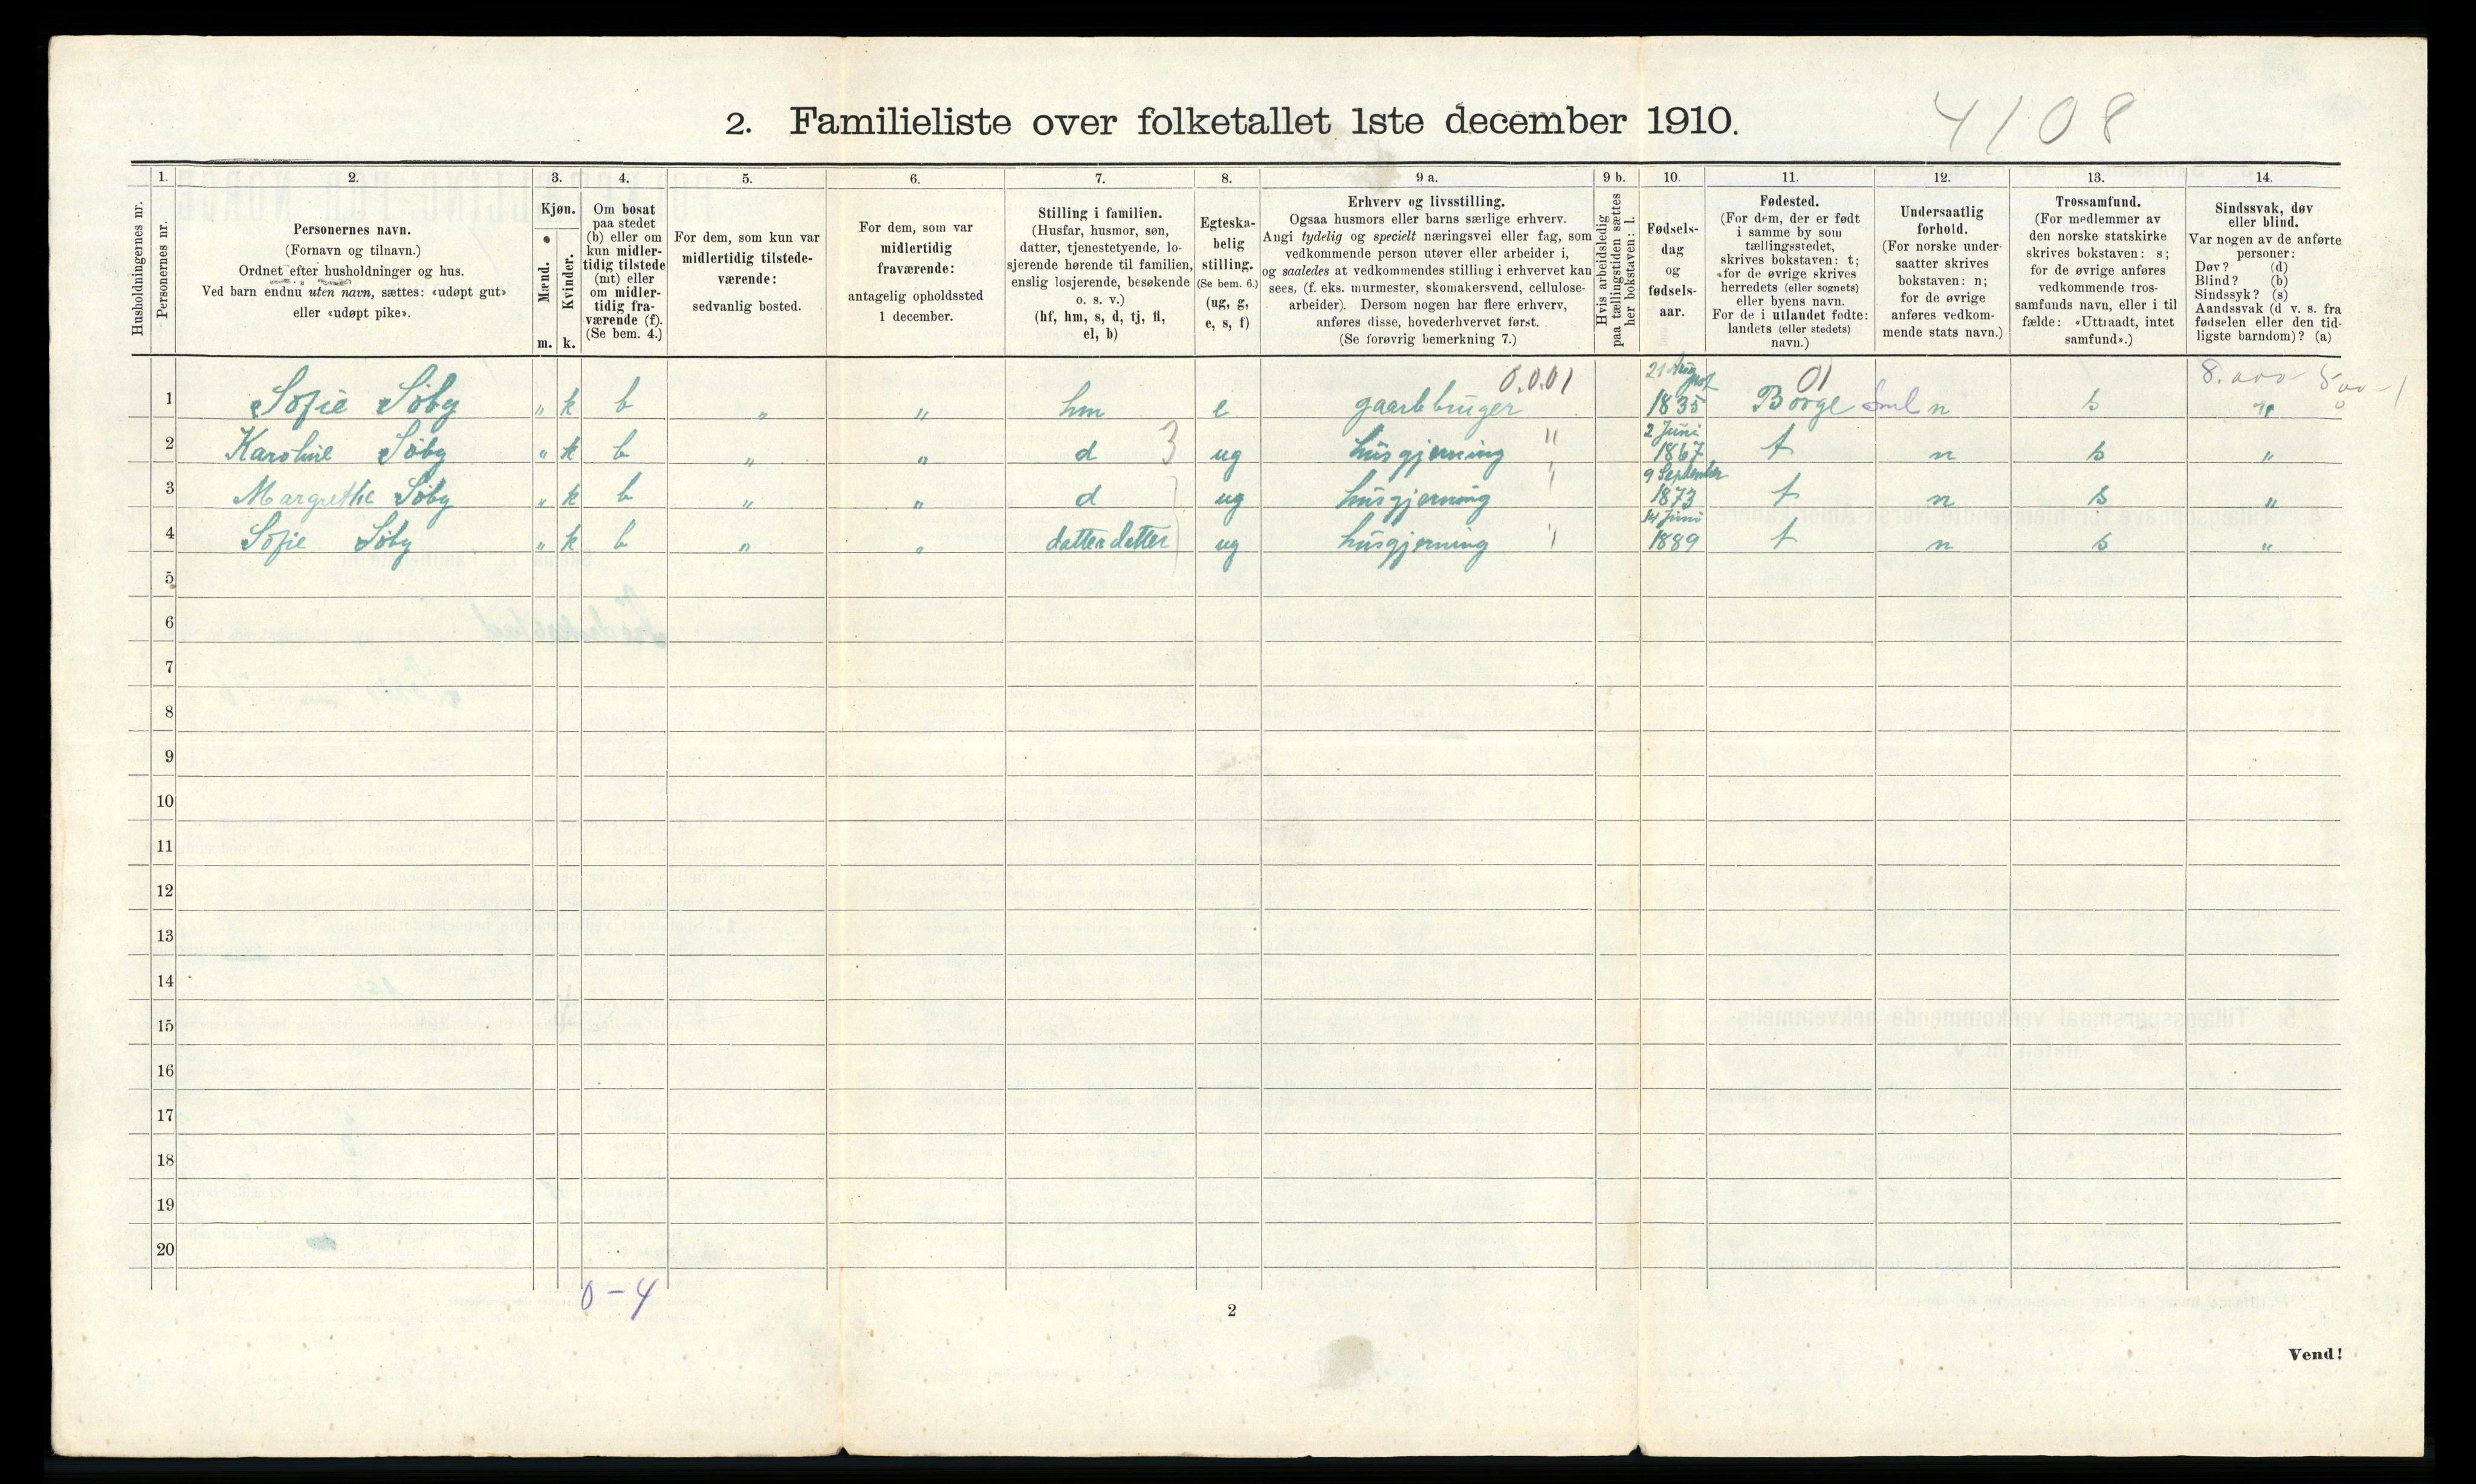 2. Familieliste over folketallet 1ste december 1910.
4108
1. 2. 3. 4. 5. 6. 7. 8. 9 a. 9 b. 10. 11. 12. 13. 14.
Husholdningernes nr.
Personernes nr.
Personernes navn.
(Fornavn og tilnavn.)
Ordnet efter husholdninger og hus.
Ved barn endnu uten navn, sættes: «udøpt gut»
eller «udøpt pike».
Kjøn.
Mænd.
Kvinder.
m. k.
Om bosat
paa stedet
(b) eller om
kun midler-
tidig tilstede
(mt) eller
om midler-
tidig fra-
værende (f).
(Se bem. 4.)
For dem, som kun var
midlertidig tilstede-
værende:
sedvanlig bosted.
For dem, som var
midlertidig
fraværende:
antagelig opholdssted
1 december.
Stilling i familien.
(Husfar, husmor, søn,
datter, tjenestetyende, lo-
sjerende hørende til familien,
enslig losjerende, besøkende
o. s. v.)
(hf, hm, s, d, tj, fl,
el, b)
Egteska-
belig
stilling.
(Se bem. 6.)
(ug, g,
e, s, f)
Erhverv og livsstilling.
Ogsaa husmors eller barns særlige erhverv.
Angi tydelig og specielt næringsvei eller fag, som
vedkommende person utøver eller arbeider i,
og saaledes at vedkommendes stilling i erhvervet kan
sees, (f. eks. murmester, skomakersvend, cellulose-
arbeider). Dersom nogen har flere erhverv,
anføres disse, hovederhvervet først.
(Se forøvrig bemerkning 7.)
Hvis arbeidsledig
paa tællingstiden sættes
her bokstaven: l.
Fødsels-
dag
og
fødsels-
aar.
Fødested.
(For dem, der er født
i samme by som
tællingsstedet,
skrives bokstaven: t;
for de øvrige skrives
herredets (eller sognets)
eller byens navn.
For de i utlandet fødte:
landets (eller stedets)
navn.)
Undersaatlig
forhold.
(For norske under-
saatter skrives
bokstaven: n;
for de øvrige
anføres vedkom-
mende stats navn.)
Trossamfund.
(For medlemmer av
den norske statskirke
skrives bokstaven: s;
for de øvrige anføres
vedkommende tros-
samfunds navn, eller i til
fælde: «Uttraadt, intet
samfund».)
Sindssvak, døv
eller blind.
Var nogen av de anførte
personer:
Døv? (d)
Blind? (b)
Sindssyk? (s)
Aandssvak (d v. s. fra
fødselen eller den tid-
ligste barndom)? (a)
1 Sofie Søby " k b " " hm e gaardbruger 0.0.01 21 August 1835 Borge 01 Sml n s "
2 Karoline Søby " k b " " d 3 ug husgjerning " 2 Juni 1867 t n s "
3 Margrethe Søby " k b " " d ug husgjerning " 9 September 1873 t n s "
4 Sofie Søby " k b " " datterdatter ug husgjerning " 14 Juni 1889 t n s "
5
6
7
8
9
10
11
12
13
14
15
16
17
18
19
20
0-4
2
Vend!